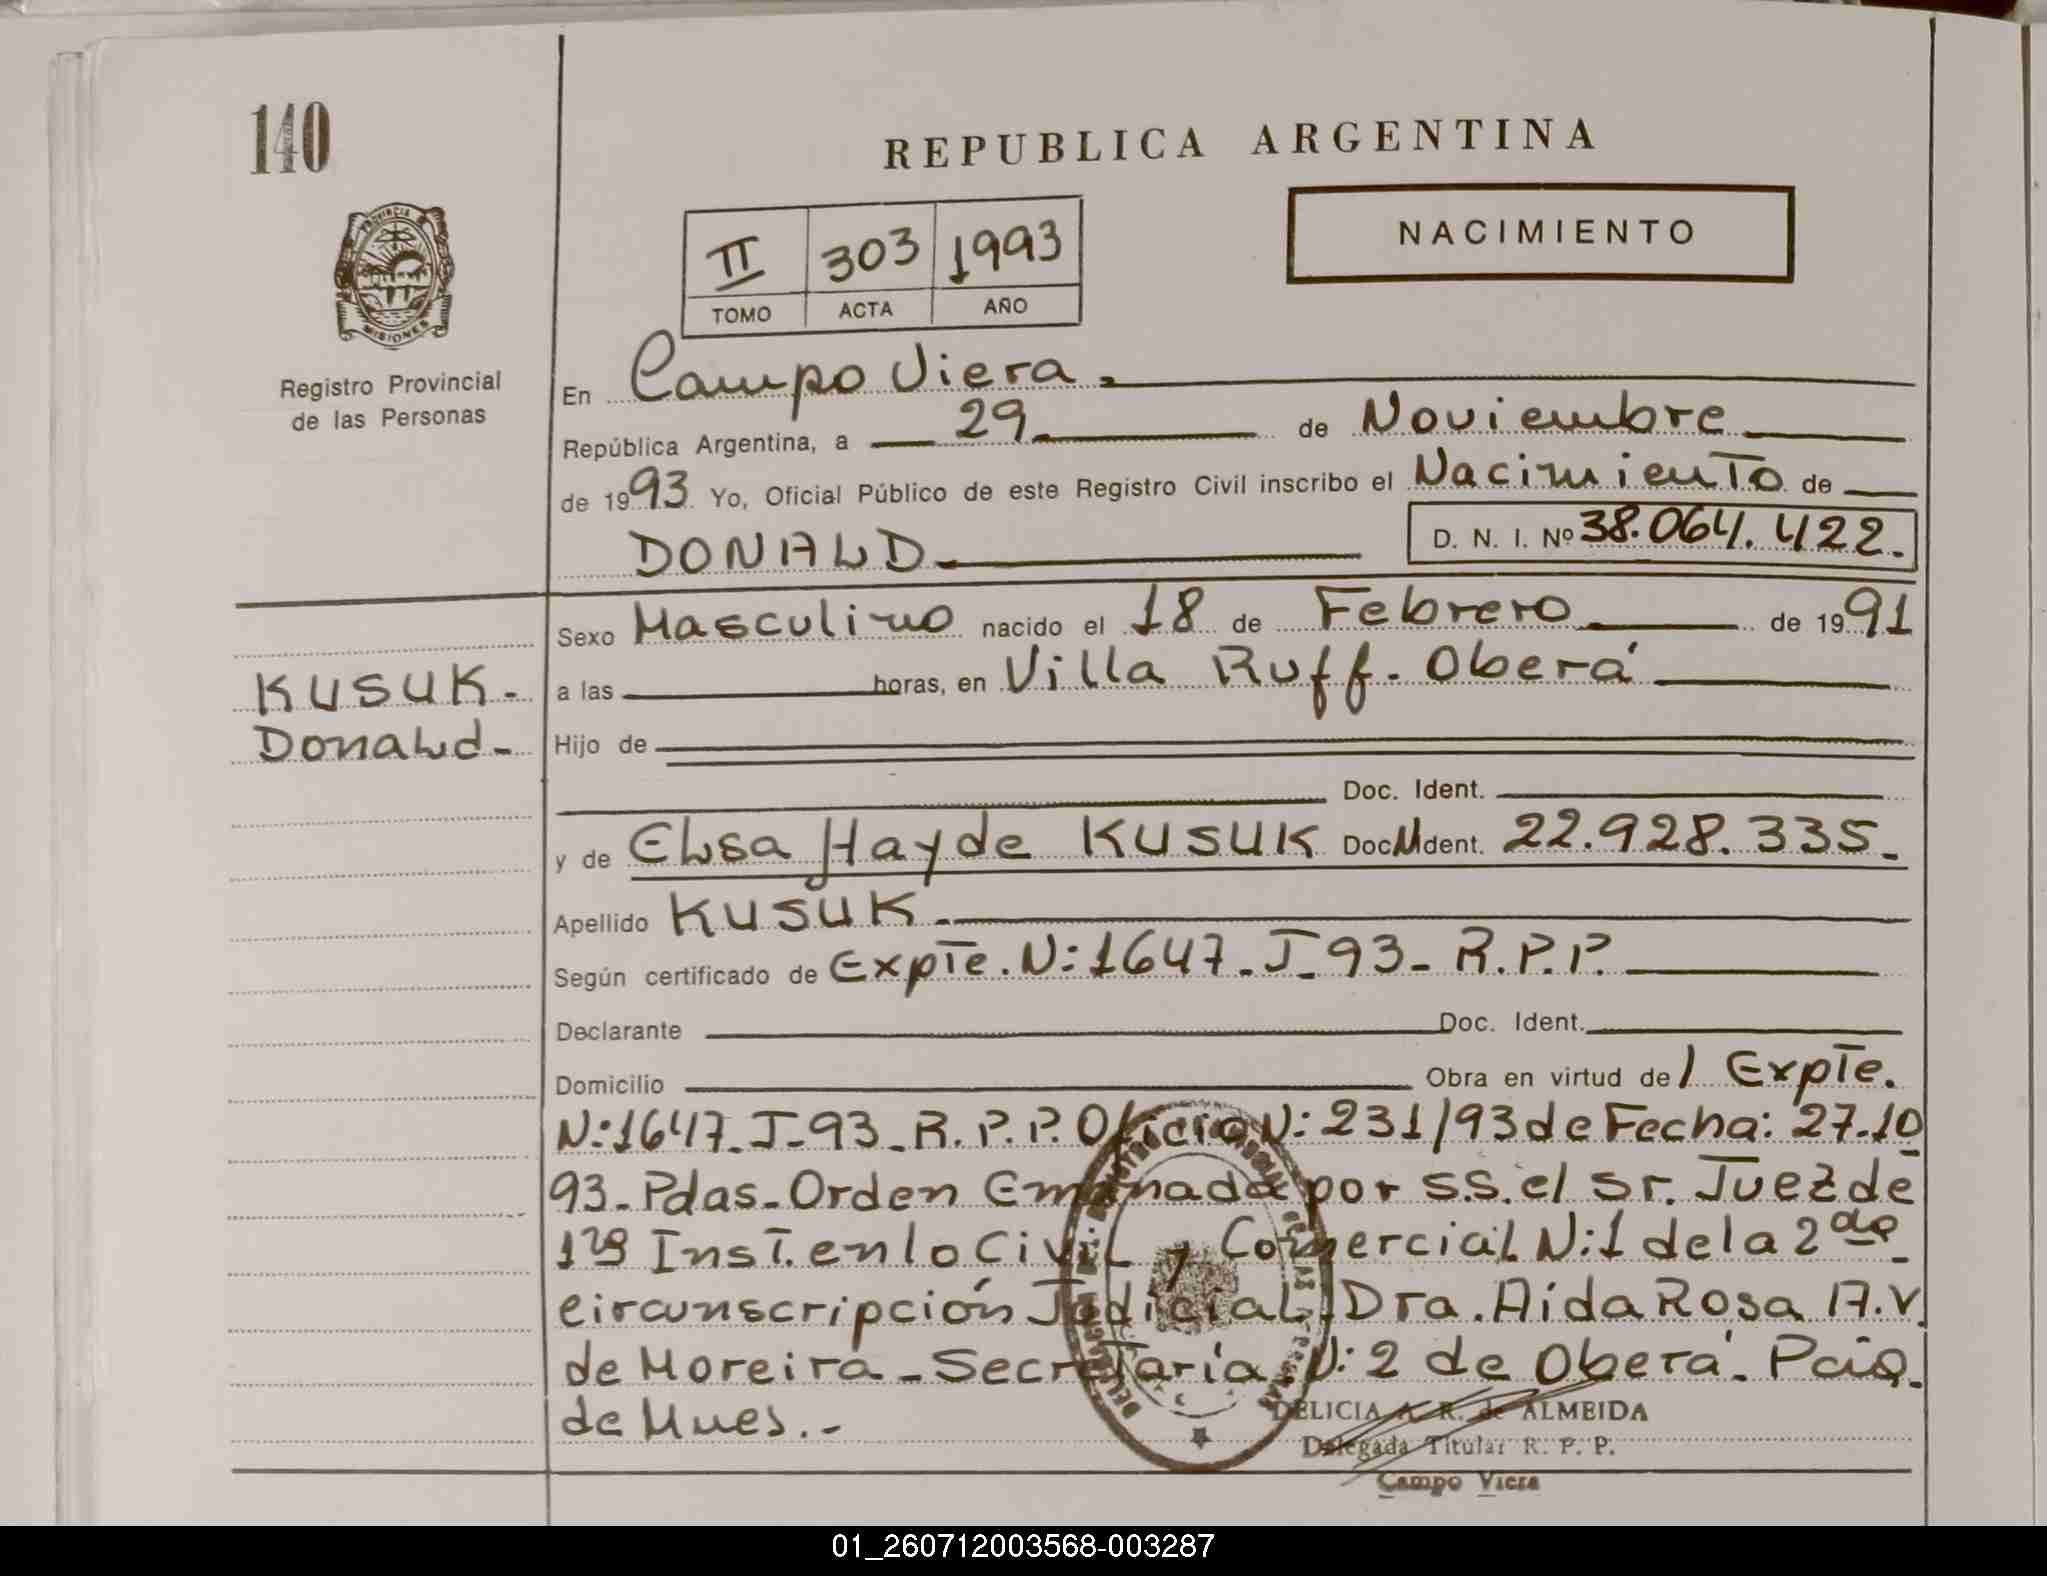 140
REPUBLICA ARGENTINA
NACIMIENTO
II 303 1993
TOMO ACTA AÑO
PROVINCIA
MISIONES
Registro Provincial
de las Personas
En Campo Viera.
República Argentina, a 29 de Noviembre
de 1993 Yo, Oficial Público de este Registro Civil inscribo el Nacimiento de
DONALD. D. N. I. Nº 38.064.422.
Sexo Masculino nacido el 18 de Febrero de 1991
KUSUK.
Donald-
a las horas, en Villa Ruff. Oberá
Hijo de
Doc. Ident.
y de Elsa Hayde KUSUK Doc. Ident. 22.928.335.
Apellido KUSUK.
Según certificado de Expte. N: 1647-J-93- R.P.P.
Declarante Doc. Ident.
Domicilio Obra en virtud del Expte.
N:1647-J-93-R.P.P. Oficio N: 231/93 de Fecha: 27.10
93-Pdas-Orden Emanada por S.S. el Sr. Juez de
Inst. en lo Civil y Comercial N:1 de la 2da
circunscripción Judicial. Dra. Aida Rosa A.V.
de Moreira-Secretaría N: 2 de Oberá.
de Mnes.-
DELICIA A. R. de ALMEIDA
Delegada Titular R. P. P.
Campo Viera
01_260712003568-003287